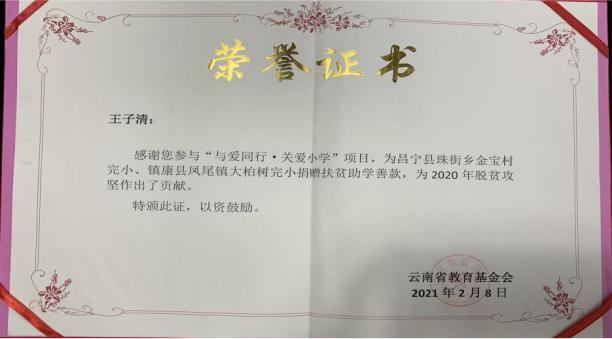 荣誉证书
王子清：
感谢您参与“与爱同行·关爱小学”项目，为昌宁县珠街乡金宝村
完小、镇康县凤尾镇大柏树完小捐赠扶贫助学善款，为 2020 年脱贫攻
坚作出了贡献。
特颁此证，以资鼓励。
云南省教育基金会
2021 年 2 月 8 日